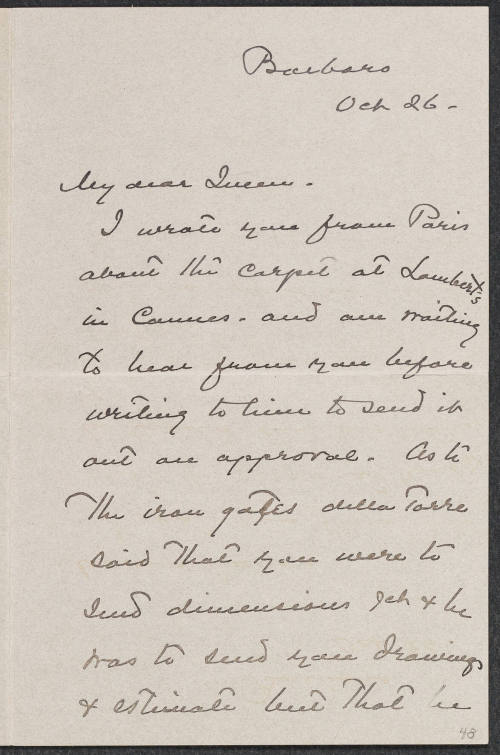 Barbaro
Oct 26 -
My dear Queen -
I wrote you from Paris
about the carpet at Lambert's
in Cannes - and am waiting
to hear from you before
writing to him to send it
out on approval. As to
the iron gates della Torre
said that you were to
send dimensions & he
was to send you drawings
& estimate but that he
48